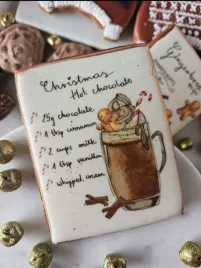 Christmas
Hot chocolate
25g chocolate
1 tsp cinnamon
2 cups milk
1 tsp vanilla
whipped cream
Gingerbread